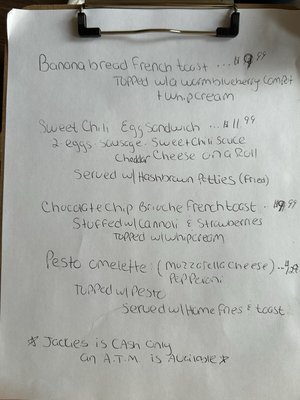 Banana bread French toast ... $9.99
Topped w/a warm blueberry compot
+ whip cream
Sweet Chili Egg Sandwich ... $11.99
2 eggs sausage. Sweet Chili Sauce
Cheddar Cheese on a Roll
Served w/Hashbrown Patties (Fried)
Chocolate Chip Brioche French toast .
Stuffed w/Cannoli & Strawberries
Topped w/whip cream
Pesto omelette: (Mozzarella Cheese)
Pepperoni
Topped w/Pesto
Served w/Home Fries & toast
* Jackies is Cash Only
an A.T.M is Available *